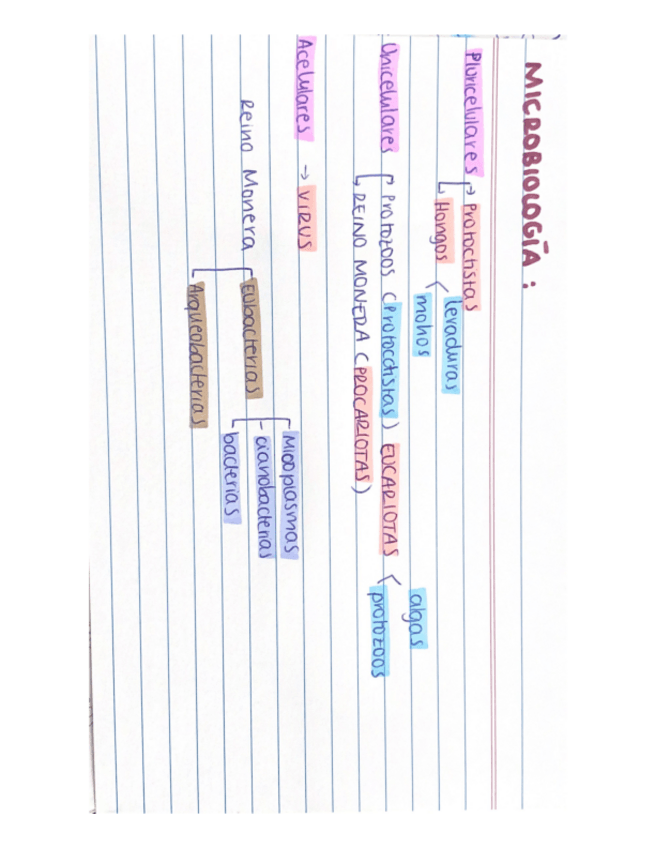 MICROBIOLOGÍA:
Pluricelulares → Protoctistas
Hongos
levaduras
mohos
Unicelulares
Protozoos (Protocctistas) EUCARIOTAS
algas
protozoos
REINO MONERA (PROCARIOTAS)
Acelulares → VIRUS
Reino Monera
Eubacterias
Micoplasmas
cianobacterias
bacterias
Arqueobacterias